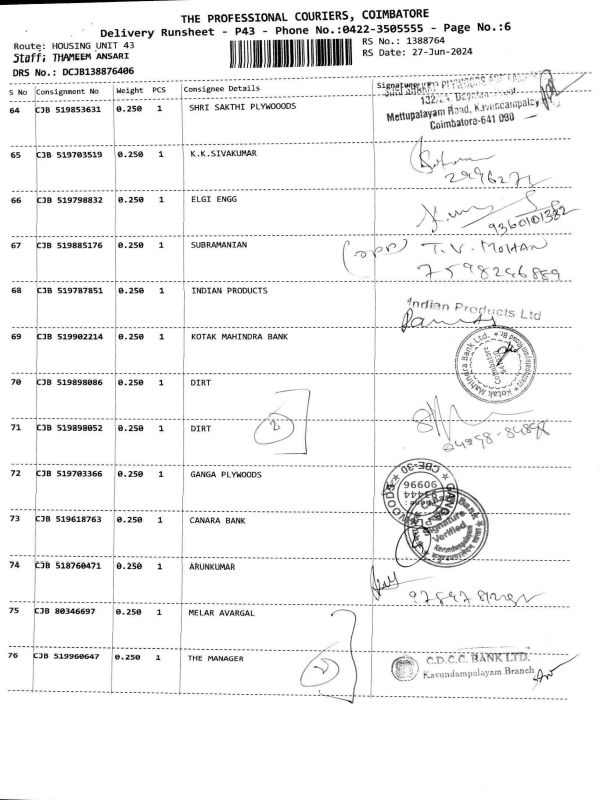 THE PROFESSIONAL COURIERS, COIMBATORE
Delivery Runsheet - P43 - Phone No.:0422-3505555 - Page No.:6
Route: HOUSING UNIT 43
RS No.: 1388764
Staff: THAMEEM ANSARI
RS Date: 27-Jun-2024
DRS No.: DCJB138876406
S No Consignment No Weight PCS Consignee Details Signature
64 CJB 519853631 0.250 1 SHRI SAKTHI PLYWOOODS
Mettupalayam Road, Kavundampalay
Coimbatore-641 030
65 CJB 519703519 0.250 1 K.K.SIVAKUMAR
66 CJB 519798832 0.250 1 ELGI ENGG
9360101382
67 CJB 519885176 0.250 1 SUBRAMANIAN
T.V. MOHAN
7598246889
68 CJB 519787851 0.250 1 INDIAN PRODUCTS
Indian Products Ltd
69 CJB 519902214 0.250 1 KOTAK MAHINDRA BANK
Kotak Mahindra Bank Ltd.
Coimbatore
70 CJB 519898086 0.250 1 DIRT
71 CJB 519898052 0.250 1 DIRT
2
84898-84898
72 CJB 519703366 0.250 1 GANGA PLYWOODS
CBE-30
90996
73 CJB 519618763 0.250 1 CANARA BANK
Signature
Verified
Kavundampalayam
74 CJB 518760471 0.250 1 ARUNKUMAR
75 CJB 80346697 0.250 1 MELAR AVARGAL
76 CJB 519960647 0.250 1 THE MANAGER
C.D.C.C. BANK LTD.
Kavundampalayam Branch